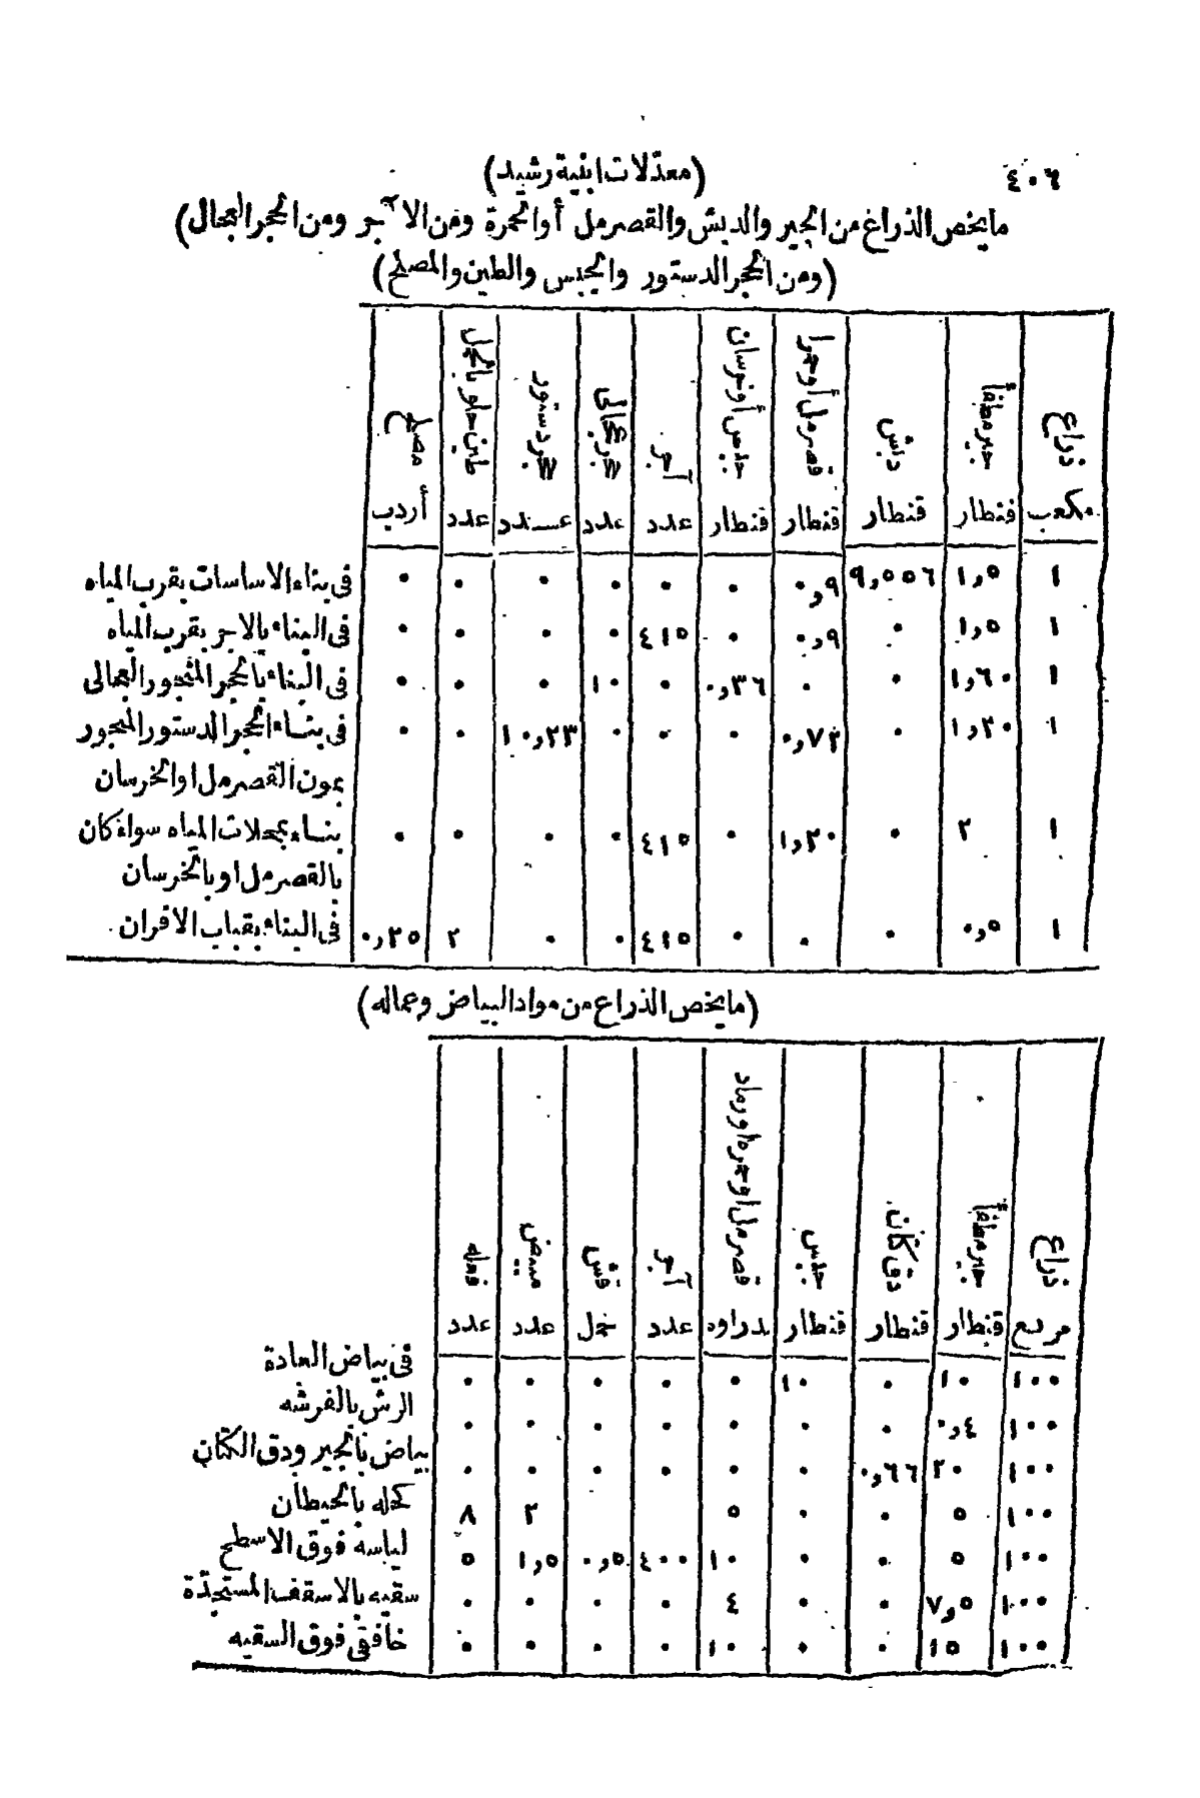 ٤٠٦
(معدّلات ابنية رشيد)
مايخص الذراع من الجير والدبش والقصرمل أو الحمرة ومن الآجر ومن الحجر العجالى)
(ومن الحجر الدستور والجبس والطين والمصلح)
ذراع مكعب | جير مطفأ قنطار | دبش قنطار | قصرمل أو حمرا قنطار | جبس أو خرسان قنطار | آجر عدد | حجر عجالى عدد | حجر دستور عدد | طين حلو بالحمل عدد | مصلح أردب
١ | ١٫٥ | ٩٫٥٥٦ | ٠٫٩ | ٠ | ٠ | ٠ | ٠ | ٠ | ٠ | فى بناء الاساسات بقرب المياه
١ | ١٫٥ | ٠ | ٠٫٩ | ٠ | ٤١٥ | ٠ | ٠ | ٠ | ٠ | فى البناء بالاجر بقرب المياه
١ | ١٫٦٠ | ٠ | ٠ | ٠٫٣٦ | ٠ | ١٠ | ٠ | ٠ | ٠ | فى البناء بالحجر المنجور العجالى
١ | ١٫٢٠ | ٠ | ٠٫٧٢ | ٠ | ٠ | ٠ | ١٠٫٢٣ | ٠ | ٠ | فى بناء الحجر الدستور المنجور
بمون القصرمل او الخرسان
١ | ٢ | ٠ | ١٫٢٠ | ٠ | ٤١٥ | ٠ | ٠ | ٠ | ٠ | بناء بمحلات المياه سواء كان
بالقصرمل او بالخرسان
١ | ٠٫٥ | ٠ | ٠ | ٠ | ٤١٥ | ٠ | ٠ | ٢ | ٠٫٢٥ | فى البناء بقباب الافران
(مايخص الذراع من مواد البياض وعماله)
ذراع مربع | جير مطفأ قنطار | دق كتان قنطار | جبس قنطار | قصرمل او حمره او رماد بدراوه | آجر عدد | قش حمل | مبيض عدد | فعله عدد
١٠٠ | ١٠ | ٠ | ١٠ | ٠ | ٠ | ٠ | ٠ | ٠ | فى بياض العادة
١٠٠ | ٠٫٤ | ٠ | ٠ | ٠ | ٠ | ٠ | ٠ | ٠ | الرش بالفرشه
١٠٠ | ٢٠ | ٠٫٦٦ | ٠ | ٠ | ٠ | ٠ | ٠ | ٠ | بياض بالجير ودق الكتان
١٠٠ | ٥ | ٠ | ٠ | ٥ | ٢ | ٨ | كحله بالحيطان
١٠٠ | ٥ | ٠ | ٠ | ١٠ | ٤٠٠ | ٠٫٥ | ١٫٥ | ٥ | لياسة فوق الاسطح
١٠٠ | ٧٫٥ | ٠ | ٠ | ٤ | ٠ | ٠ | ٠ | ٠ | سقيه بالاسقف المستجدّة
١٠٠ | ١٥ | ٠ | ٠ | ١٠ | ٠ | ٠ | ٠ | ٠ | خافقى فوق السقيه